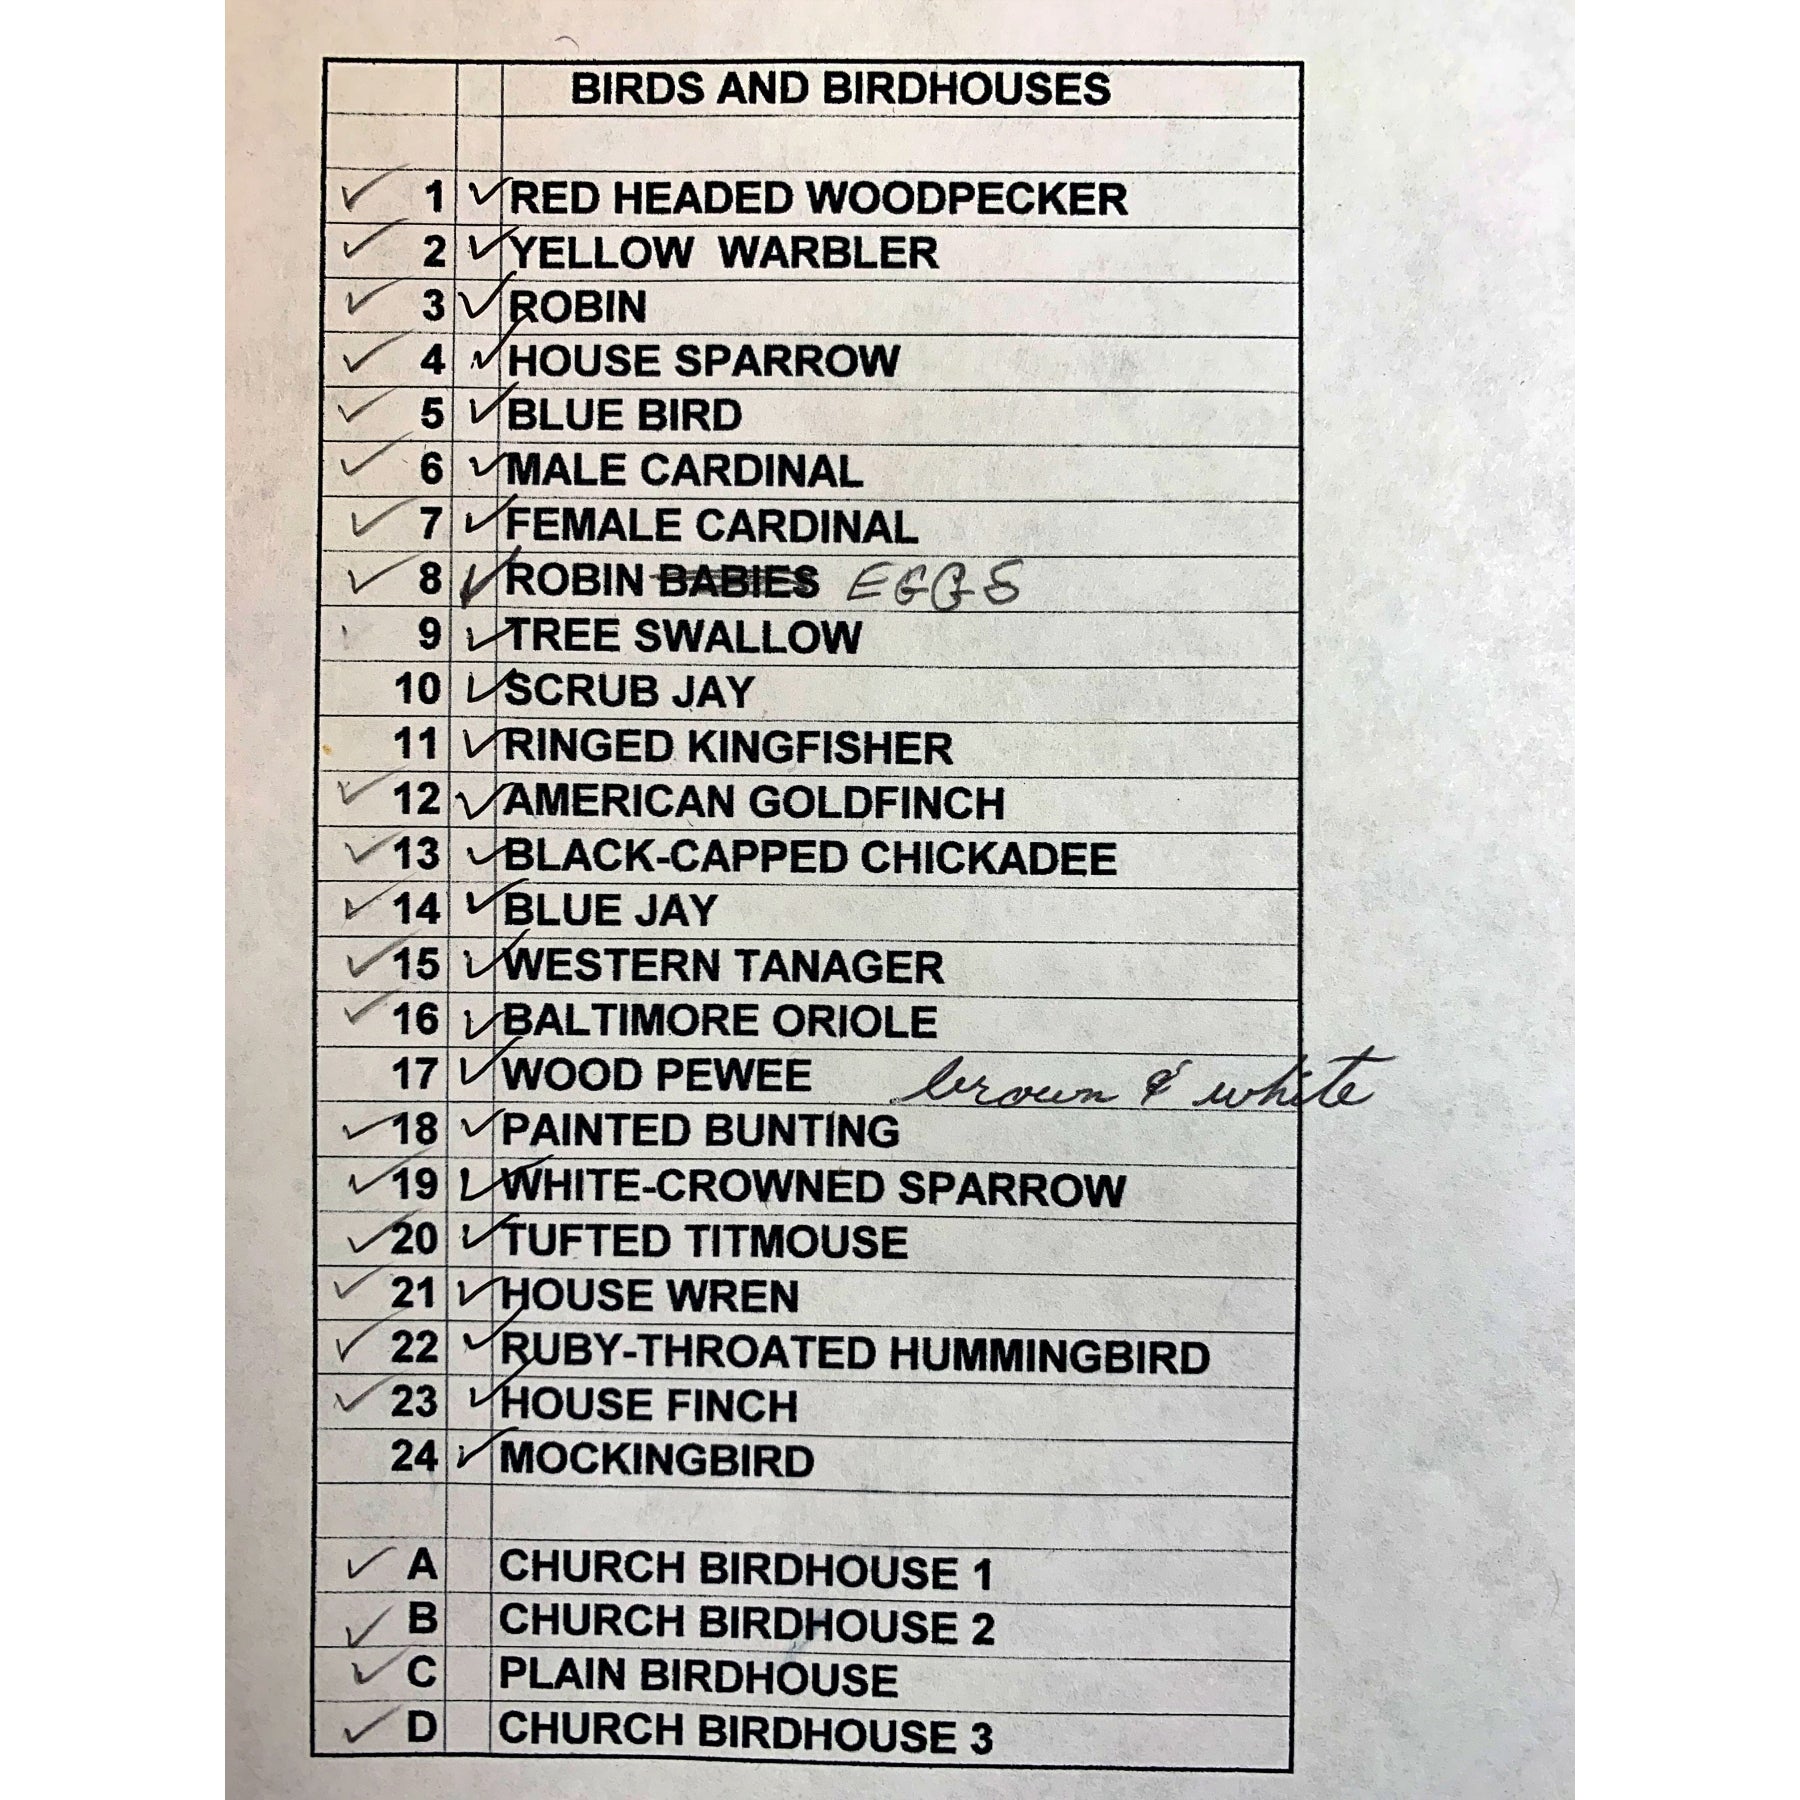 BIRDS AND BIRDHOUSES
✓ 1 ✓ RED HEADED WOODPECKER
✓ 2 ✓ YELLOW WARBLER
✓ 3 ✓ ROBIN
✓ 4 ✓ HOUSE SPARROW
✓ 5 ✓ BLUE BIRD
✓ 6 ✓ MALE CARDINAL
✓ 7 ✓ FEMALE CARDINAL
✓ 8 ✓ ROBIN BABIES EGGS
✓ 9 ✓ TREE SWALLOW
10 ✓ SCRUB JAY
11 ✓ RINGED KINGFISHER
✓ 12 ✓ AMERICAN GOLDFINCH
✓ 13 ✓ BLACK-CAPPED CHICKADEE
✓ 14 ✓ BLUE JAY
✓ 15 ✓ WESTERN TANAGER
✓ 16 ✓ BALTIMORE ORIOLE
17 ✓ WOOD PEWEE brown & white
✓ 18 ✓ PAINTED BUNTING
✓ 19 ✓ WHITE-CROWNED SPARROW
✓ 20 ✓ TUFTED TITMOUSE
✓ 21 ✓ HOUSE WREN
✓ 22 ✓ RUBY-THROATED HUMMINGBIRD
✓ 23 ✓ HOUSE FINCH
24 ✓ MOCKINGBIRD
✓ A CHURCH BIRDHOUSE 1
✓ B CHURCH BIRDHOUSE 2
✓ C PLAIN BIRDHOUSE
✓ D CHURCH BIRDHOUSE 3